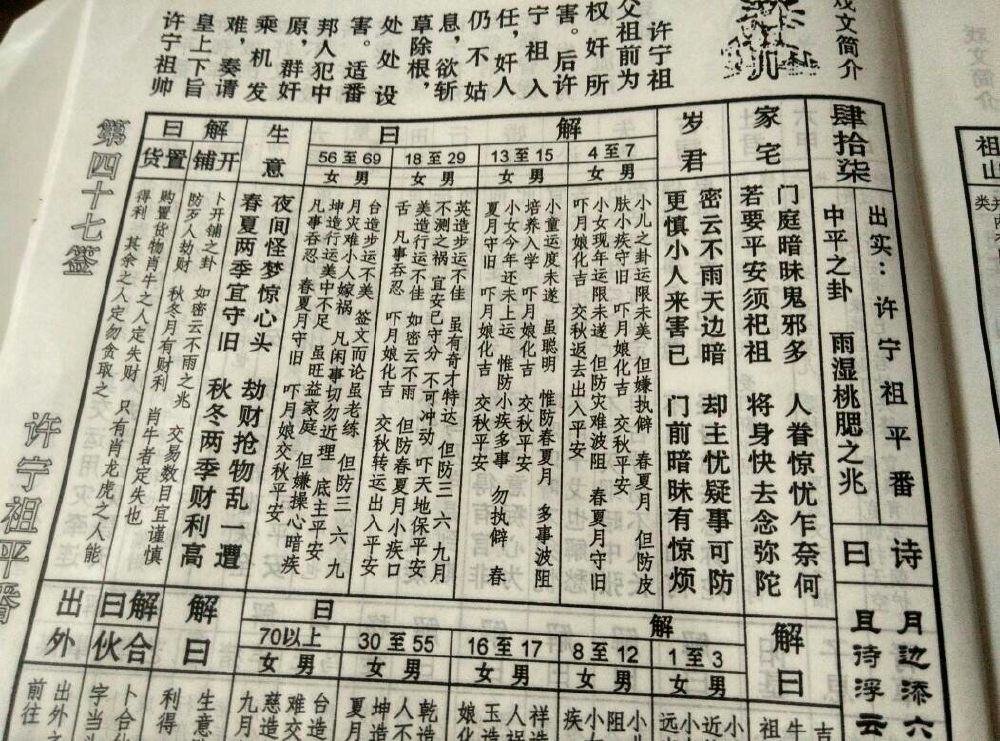 戏文简介
许宁祖
父祖前为
权奸所
害。后许
宁祖入
任，奸人
仍不姑
息，欲斩
草除根，
处处设
害。适番
邦人犯中
原，群奸
乘机发
难，奏请
皇上下旨
许宁祖帅
肆拾柒
出实：许宁祖平番
中平之卦 雨湿桃腮之兆
诗曰
月边添六
且待浮云
家宅
门庭暗昧鬼邪多 人眷惊忧乍奈何
若要平安须祀祖 将身快去念弥陀
岁君
密云不雨天边暗 却主忧疑事可防
更慎小人来害已 门前暗昧有惊烦
解曰
4至7
女 男
小儿之卦运限未美 但嫌执僻 春夏月 但防皮
肤小疾守旧 吓月娘化吉 交秋平安
小女现年运限未遂 但防灾难波阻 春夏月守旧
吓月娘化吉 交秋返去出入平安
13至15
女 男
小童运度未遂 虽聪明 惟防春夏月 多事波阻
培养入学 吓月娘化吉 交秋平安
小女今年还未上运 惟防小疾多事 勿执僻 春
夏月守旧 吓月娘化吉 交秋平安
18至29
女 男
英造步运不佳 虽有奇才特达 但防三 六 九月
不测之祸 宜安已守分 不可冲动 吓天地保平安
美造行运不佳 如密云不雨 但防春夏月小疾口
舌 凡事吞忍 吓月娘化吉 交秋转运出入平安
56至69
女 男
台造步运不美 签文而论虽老练 但防三 六 九
月灾难小人嫁祸 凡闲事切勿近理 底主平安
坤造行运美中不足 虽旺益家庭 但嫌操心暗疾
凡事吞忍 春夏月守旧 吓月娘交秋平安
生意
夜间怪梦惊心头 劫财抢物乱一遭
春夏两季宜守旧 秋冬两季财利高
解曰
开铺
卜开铺之卦 如密云不雨之兆 交易数目宜谨慎
防歹人劫财 秋冬月有财利 肖牛者定失也
置货
购置货物肖牛之人定失财 只有肖龙虎之人能
得利 其余之人定勿贪取之
第四十七签
许宁祖平番
解曰
解曰
1至3
女 男
8至12
女 男
16至17
女 男
30至55
女 男
70以上
女 男
解曰
生意
利得
解曰
合伙
卜合伙
字当
出外
出外之
前往
祖山